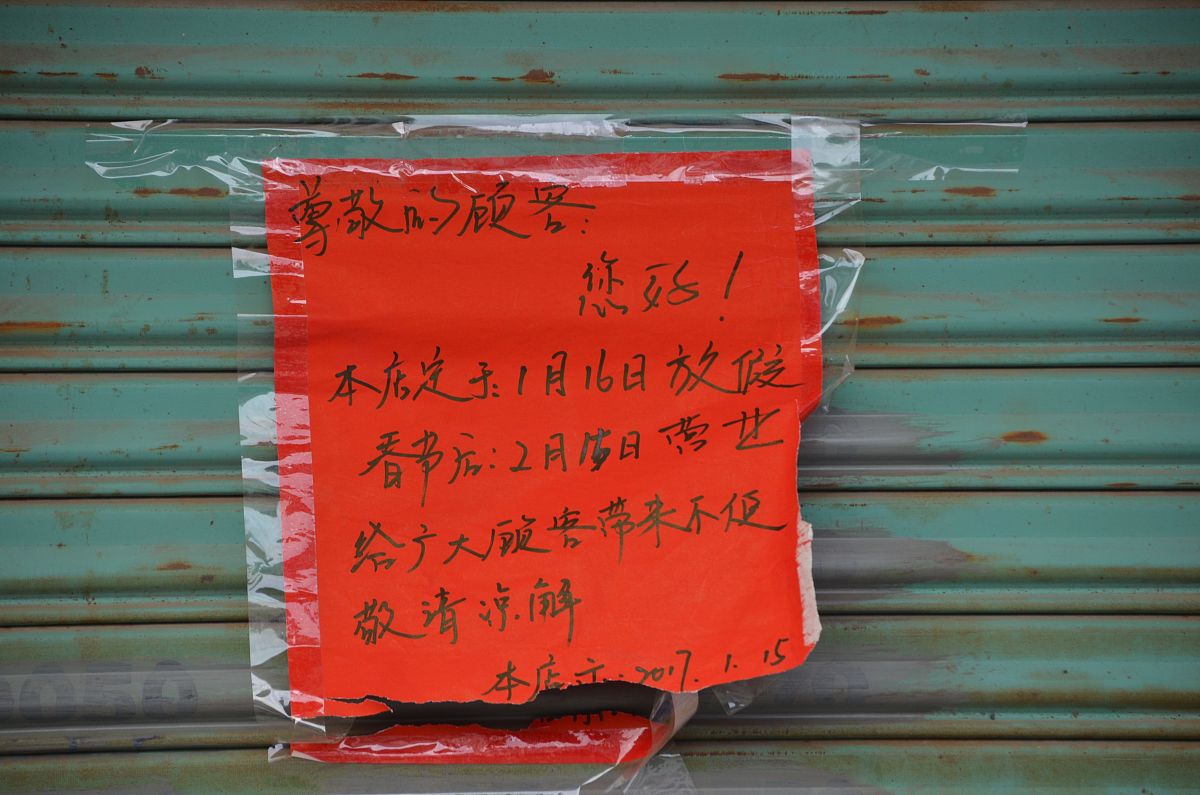 尊敬的顾客:
您好!
本店定于:1月16日放假
春节后:2月15日营业
给广大顾客带来不便
敬请凉解
本店 2017.1.15